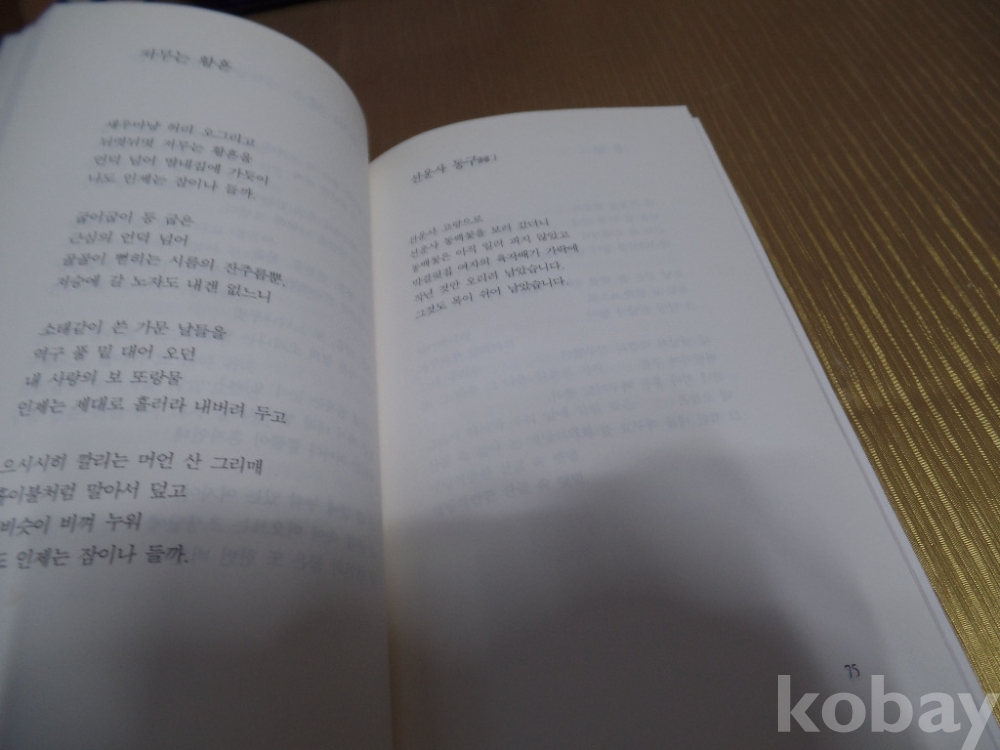 저무는 황혼
새우마냥 허리 오그리고
뉘엿뉘엿 저무는 황혼을
언덕 넘어 딸네집에 가듯이
나도 인제는 잠이나 들까.
굽이굽이 등 굽은
근심의 언덕 넘어
골골이 뻗히는 시름의 잔주름뿐,
저승에 갈 노자도 내겐 없느니
소태같이 쓴 가문 날들을
역구 풀 밑 대어 오던
내 사랑의 보 또랑물
인제는 제대로 흘러라 내버려 두고
으시시히 깔리는 머언 산 그리메
홑이불처럼 말아서 덮고
비슷이 비껴 누워
도 인제는 잠이나 들까.
선운사 동구
선운사 고랑으로
선운사 동백꽃을 보러 갔더니
동백꽃은 아직 일러 피지 않았고
막걸릿집 여자의 육자배기 가락에
작년 것만 오히려 남았습니다.
그것도 목이 쉬어 남았습니다.
75
kobay